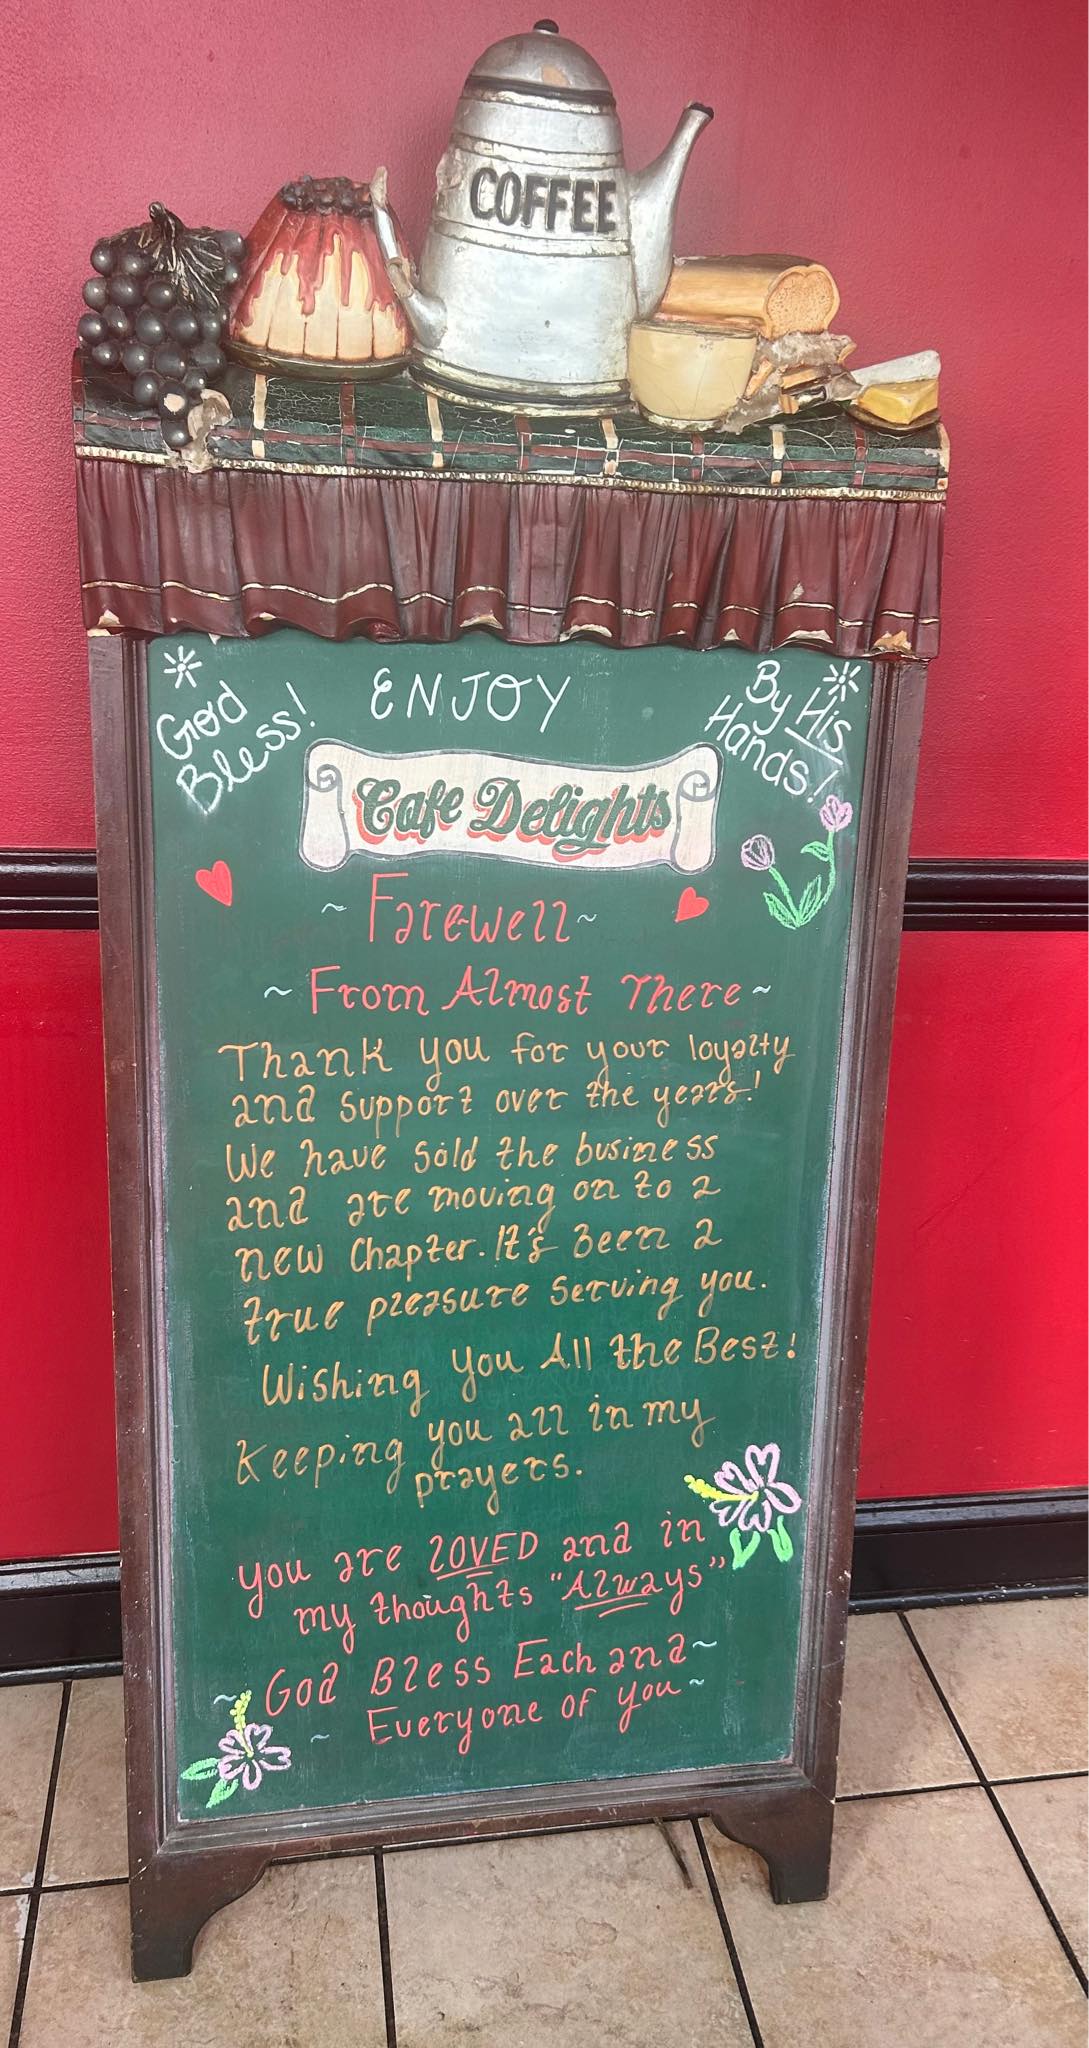 COFFEE
God
Bless!
ENJOY
By His
Hands!
Cafe Delights
~ Farewell ~
~ From Almost There ~
Thank you for your loyalty
and support over the years!
We have sold the business
and are moving on to a
new Chapter. It's Been a
true pleasure serving you.
Wishing you All the Best!
Keeping you all in my
prayers.
you are LOVED and in
my thoughts "Always"
~ God Bless Each and ~
~ Everyone of you ~